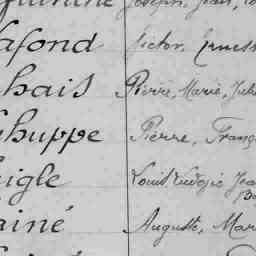 Joseph, Jean,
afond Victor, Ernest
hais Pierre, Marie, Jule
huppe Pierre, Franç
igle Louis Eudogie Jea
ainé Auguste, Mar